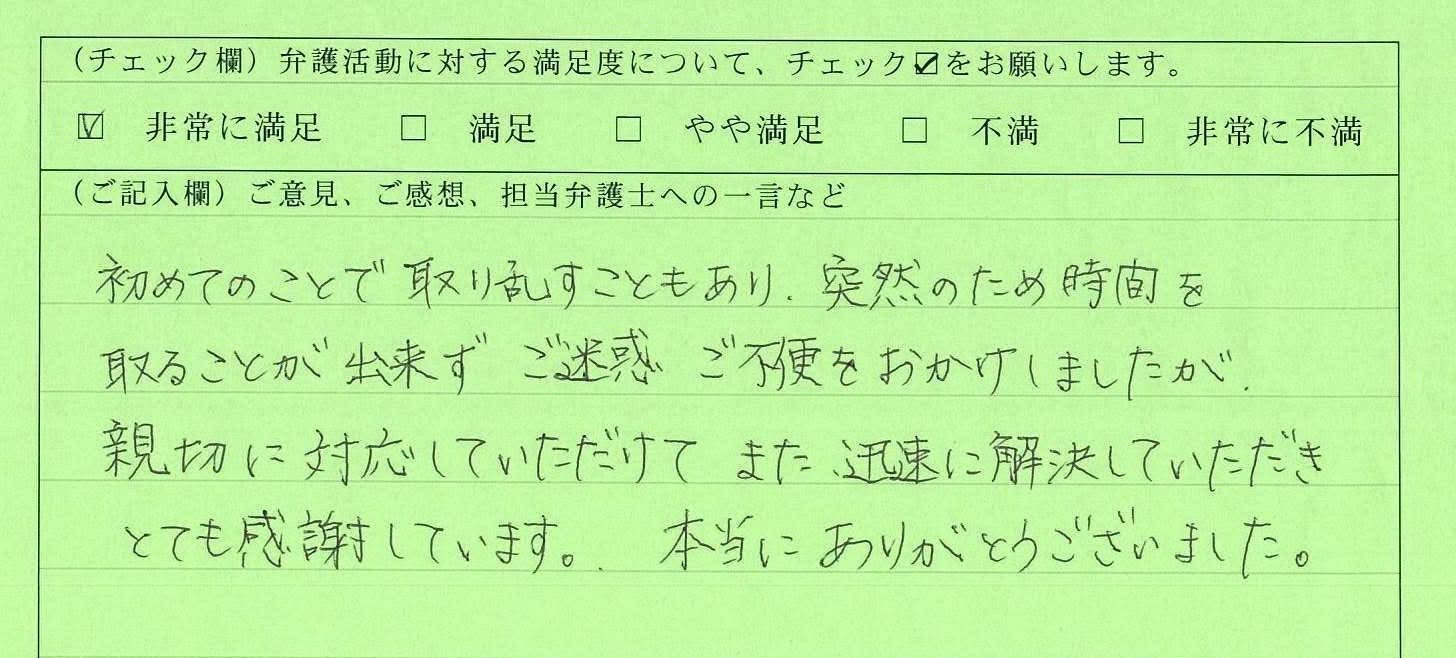 （チェック欄）弁護活動に対する満足度について、チェック☑をお願いします。
☑ 非常に満足 □ 満足 □ やや満足 □ 不満 □ 非常に不満
（ご記入欄）ご意見、ご感想、担当弁護士への一言など
初めてのことで取り乱すこともあり、突然のため時間を
取ることが出来ず ご迷惑 ご不便をおかけしましたが、
親切に対応していただけて また、迅速に解決していただき
とても感謝しています。 本当にありがとうございました。